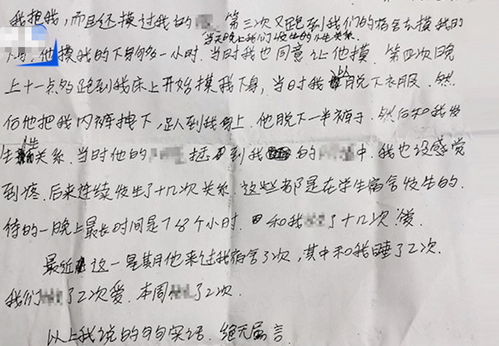 我抱我,而且还摸过我的 第三次又跑到我们的宿舍去摸我的
当天晚上我们发生的关系.
下身,他摸我的下身 多一小时.当时我也同意让他摸.第四次晚
上十一点多跑到我床上开始摸我下身,当时我 脱下衣服.然
后他把我内裤拽下,趴到我身上.他脱下一半裤子.然后和我发
生性关系.当时他的 到我 的 中.我也没感觉
到疼.后来连续发生了十几次关系.这些都是在学生宿舍发生的.
待的一晚上最长时间是 个小时. 和我 了十几次爱.
最近 这一星期他来过我宿舍了2次,其中和我睡了2次.
我们 了2次爱.本周 了2次.
以上我说的句句实话.绝无虚言.